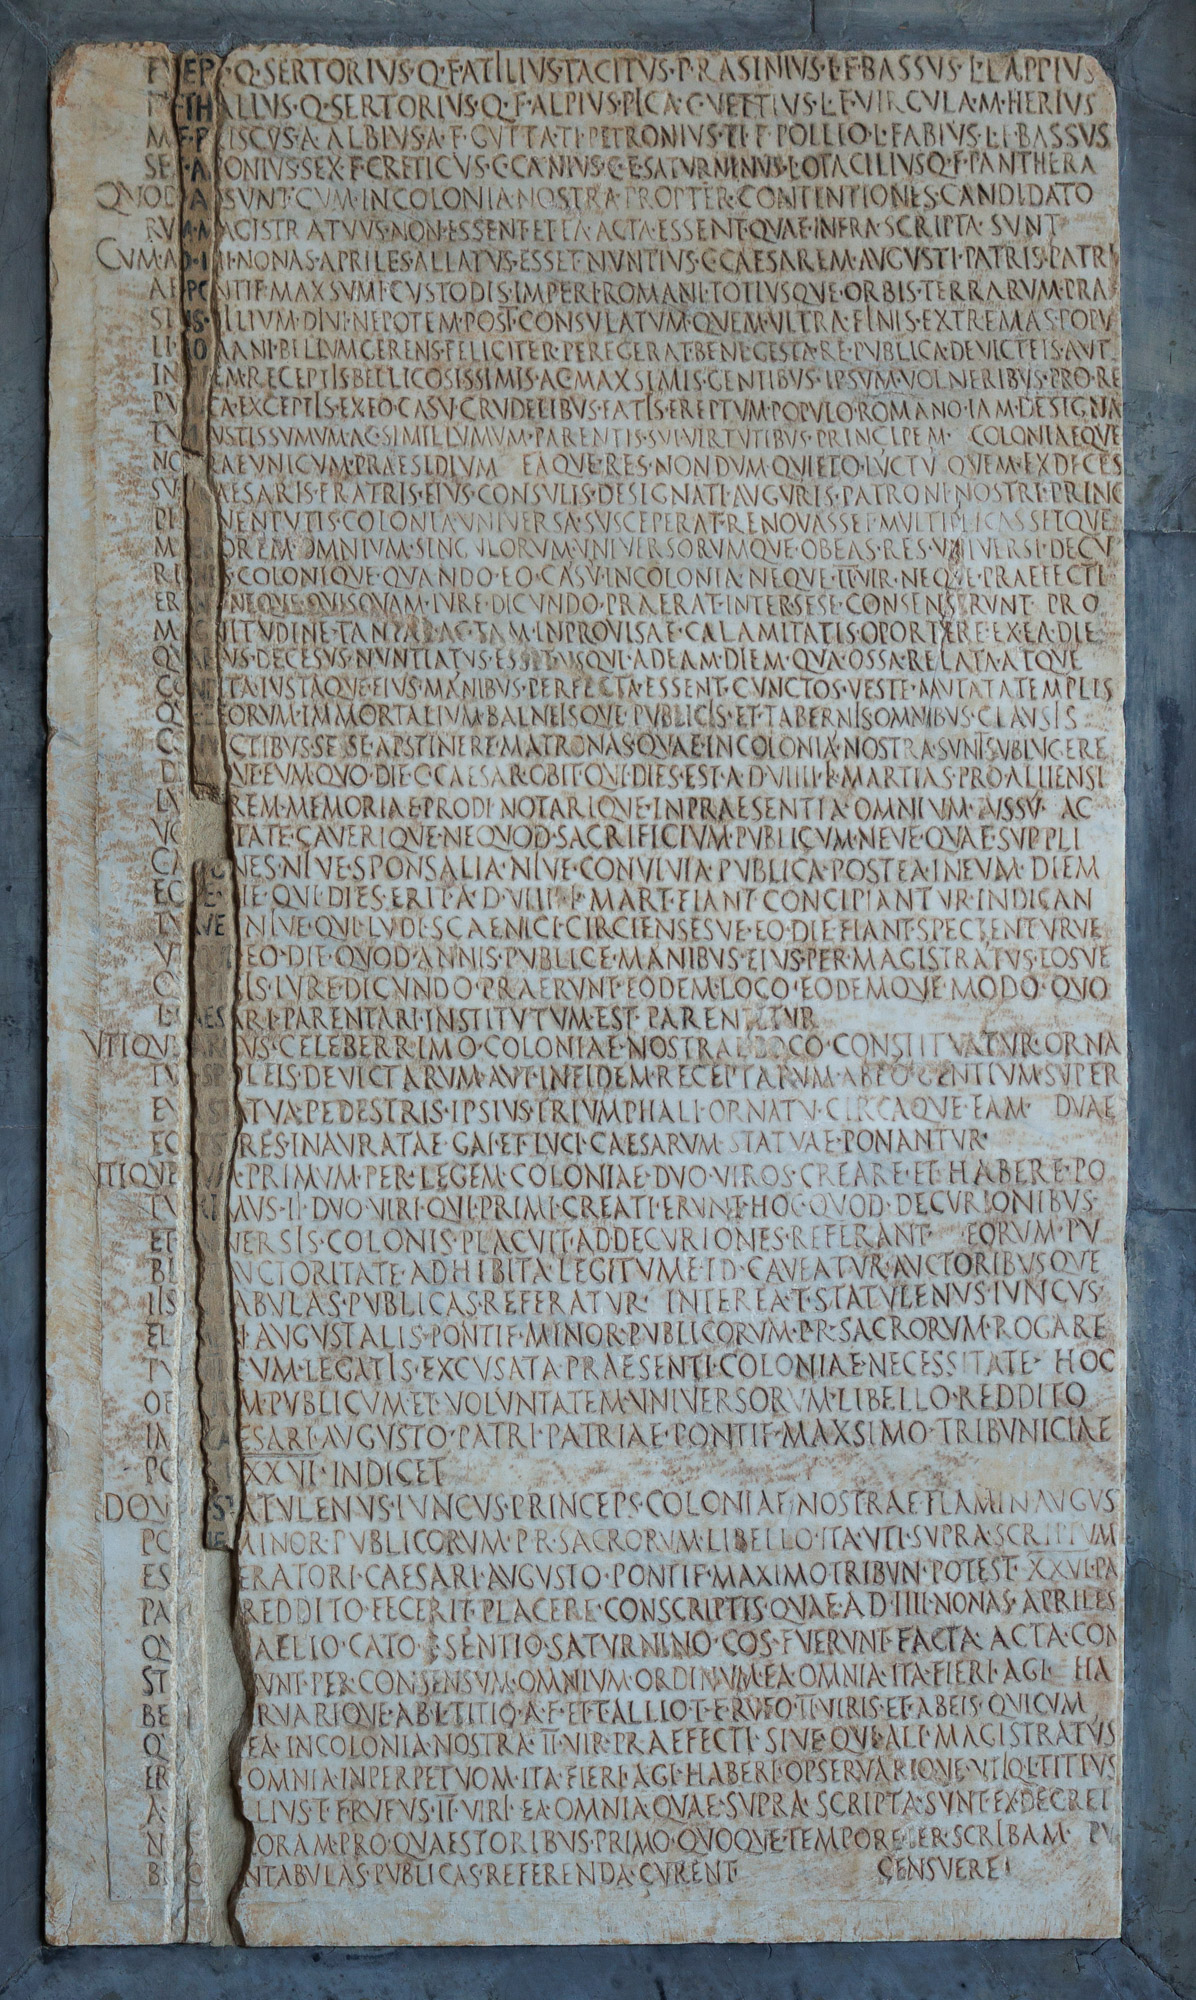 Q·SERTORIVS·Q·F·ATILIVS·TACITVS·P·RASINIVS·L·F·BASSVS·L·LAPPIVS
GALLVS·Q·SERTORIVS·Q·F·ALPIVS·PICA·C·VETTIVS·L·F·VIRGVLA·M·HERIVS
M·F·PRISCVS·A·ALBIVS·A·F·GVTTA·TI·PETRONIVS·TI·F·POLLIO·L·FABIVS·L·F·BASSVS
SEX·APONIVS·SEX·F·CRETICVS·C·CANIVS·C·F·SATVRNINVS·L·OTACILIVS·Q·F·PANTHERA
QVOD·A SVNT·CVM·IN·COLONIA·NOSTRA·PROPTER·CONTENTIONES·CANDIDATO
RVM·MAGISTRATVVS·NON·ESSENT·ET·EA·ACTA·ESSENT·QVAE·INFRA·SCRIPTA·SVNT
CVM·A·D·IIII·NONAS·APRILES·ALLATVS·ESSET·NVNTIVS·C·CAESAREM·AVGVSTI·PATRIS·PATRI
AE·PONTIF·MAXSVMI·CVSTODIS·IMPERI·ROMANI·TOTIVSQVE·ORBIS·TERRARVM·PRAE
SIDIS·FILIVM·DIVI·NEPOTEM·POST·CONSVLATVM·QVEM·VLTRA·FINIS·EXTREMAS·POPV
LI·ROMANI·BELLVM·GERENS·FELICITER·PEREGERAT·BENE·GESTA·RE·PVBLICA·DEVICTEIS·AVT
IN·FIDEM·RECEPTIS·BELLICOSISSIMIS·AC·MAXSIMIS·GENTIBVS·IPSVM·VOLNERIBVS·PRO·RE
PVBLICA·EXCEPTIS·EX·EO·CASV·CRVDELIBVS·FATIS·EREPTVM·POPVLO·ROMANO·IAM·DESIGNA
TVM·IVSTISSVMVM·AC·SIMILLVMVM·PARENTIS·SVI·VIRTVTIBVS·PRINCIPEM· COLONIAEQVE
NOSTRAE·VNICVM·PRAESIDIVM EAQVE·RES·NONDVM·QVIETO·LVCTV·QVEM·EX·DECES
SV·CAESARIS·FRATRIS·EIVS·CONSVLIS·DESIGNATI·AVGVRIS·PATRONI·NOSTRI·PRINC
PIS·IVVENTVTIS·COLONIA·VNIVERSA·SVSCEPERAT·RENOVASSET·MVLTIPLICASSETQVE
MAEROREM·OMNIVM·SINGVLORVM·VNIVERSORVMQVE·OB·EAS·RES·VNIVERSI·DECV
RIONES·COLONIQVE·QVANDO·EO·CASV·IN·COLONIA·NEQVE·II·VIR·NEQVE·PRAEFECTI
ERANT·NEQVE·QVISQVAM·IVRE·DICVNDO·PRAERAT·INTER·SESE·CONSENSERVNT· PRO
MAGNITVDINE·TANTAE·AC·TAM·INPROVISAE·CALAMITATIS·OPORTERE·EX·EA·DIE
QVA·EIVS·DECESVS·NVNTIATVS·ESSET·VSQVI·AD·EAM·DIEM·QVA·OSSA·RELATA·ATQVE
CONDITA·IVSTAQVE·EIVS·MANIBVS·PERFECTA·ESSENT·CVNCTOS·VESTE·MVTATA·TEMPLIS
QVE·DEORVM·IMMORTALIVM·BALNEISQVE·PVBLICIS·ET·TABERNIS·OMNIBVS·CLAVSIS
CONVICTIBVS·SESE·APSTINERE·MATRONAS·QVAE·IN·COLONIA·NOSTRA·SVNT·SVBLVGERE
DIEMQVE·EVM·QVO·DIE·C·CAESAR·OBIT·QVI·DIES·EST·A·D·VIIII·K·MARTIAS·PRO·ALLIENSI
LVGVBREM·MEMORIAE·PRODI·NOTARIQVE·IN·PRAESENTIA·OMNIVM·IVSSV· AC
VOLVNTATE·CAVERIQVE·NE·QVOD·SACRIFICIVM·PVBLICVM·NEVE·QVAE·SVPPLI
CATIONES·NIVE·SPONSALIA·NIVE·CONVIVIA·PVBLICA·POSTEA·IN·EVM·DIEM
EOVE·DIE·QVI·DIES·ERIT·A·D·VIIII·K·MART·FIANT·CONCIPIANTVR·INDICAN
TVRVE·NIVE·QVI·LVDI·SCAENICI·CIRCIENSESVE·EO·DIE·FIANT·SPECTENTVRVE
VTI EO·DIE·QVOD·ANNIS·PVBLICE·MANIBVS·EIVS·PER·MAGISTRATVS·EOSVE
QVI IS·IVRE·DICVNDO·PRAERVNT·EODEM·LOCO·EODEMQVE·MODO·QVO
L·CAESARI·PARENTARI·INSTITVTVM·EST·PARENTETVR
VTIQVE·ARCVS·CELEBERRIMO·COLONIAE·NOSTRAE·LOCO·CONSTITVATVR·ORNA
TVS·SPOLEIS·DEVICTARVM·AVT·IN·FIDEM·RECEPTARVM·AB·EO·GENTIVM·SVPER
EVM·STATVA·PEDESTRIS·IPSIVS·TRIVMPHALI·ORNATV·CIRCAQVE·EAM· DVAE
EQVESTRES·INAVRATAE·GAI·ET·LVCI·CAESARVM·STATVAE·PONANTVR·
VTIQVE PRIMVM·PER·LEGEM·COLONIAE·DVO·VIROS·CREARE·ET·HABERE·PO
TVERIMVS·II·DVO·VIRI·QVI·PRIMI·CREATI·ERVNT·HOC·QVOD·DECVRIONIBVS·
ET·VNIVERSIS·COLONIS·PLACVIT·AD·DECVRIONES·REFERANT· EORVM·PV
BLICA·AVCTORITATE·ADHIBITA·LEGITVME·ID·CAVEATVR·AVCTORIBVSQVE
IIS·IN·TABVLAS·PVBLICAS·REFERATVR· INTEREA·T·STATVLENVS·IVNCVS·
FLAMEN·AVGVSTALIS·PONTIF·MINOR·PVBLICORVM·P·R·SACRORVM·ROGARE
TVR·VTI·CVM·LEGATIS·EXCVSATA·PRAESENTI·COLONIAE·NECESSITATE· HOC
OFFICIVM·PVBLICVM·ET·VOLVNTATEM·VNIVERSORVM·LIBELLO·REDDITO
IMP·CAESARI·AVGVSTO·PATRI·PATRIAE·PONTIF·MAXSIMO·TRIBVNICIAE
POTEST·XXVI·INDICET
IDQVE·T·STATVLENVS·IVNCVS·PRINCEPS·COLONIAE·NOSTRAE·FLAMIN·AVGVS
MINOR·PVBLICORVM·P·R·SACRORVM·LIBELLO·ITA·VTI·SVPRA·SCRIPTVM
EST·IMPERATORI·CAESARI·AVGVSTO·PONTIF·MAXIMO·TRIBVN·POTEST·XXVI·PA
REDDITO·FECERIT·PLACERE·CONSCRIPTIS·QVAE·A·D·IIII·NONAS·APRILES
AELIO·CATO·C·SENTIO·SATVRNINO·COS·FVERVNT·FACTA·ACTA·CON
STITVTA·SVNT·PER·CONSENSVM·OMNIVM·ORDINVM·EA·OMNIA·ITA·FIERI·AGI· HA
BERI·OPSERVARIQVE·AB·L·TITIO·A·F·ET·T·ALLIO·T·F·RVFO·II·VIRIS·ET·AB·EIS·QVICVM
EA IN·COLONIA·NOSTRA·II·VIR·PRAEFECTI·SIVE·QVI·ALI·MAGISTRATVS
OMNIA·IN·PERPETVOM·ITA·FIERI·AGI·HABERI·OPSERVARIQVE·VTIQ·L·TITIVS
ALLIVS·T·F·RVFVS·II·VIRI·EA·OMNIA·QVAE·SVPRA·SCRIPTA·SVNT·EX·DECRETO
CORAM·PRO·QVAESTORIBVS·PRIMO·QVOQVE·TEMPORE·PER·SCRIBAM· PV
IN·TABVLAS·PVBLICAS·REFERENDA·CVRENT· CENSVERE